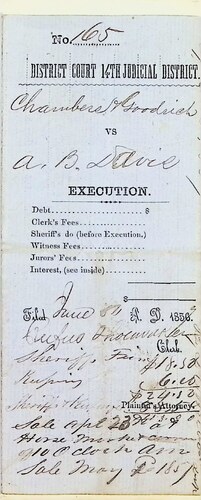 No. 165
DISTRICT COURT 14TH JUDICIAL DISTRICT.
Chambers & Goodrich
VS
A. B. Davis
EXECUTION.
Debt $
Clerk's Fees
Sheriff's do (before Execution.)
Witness Fees
Jurors' Fees
Interest, (see inside)
$
Filed June 8th A. D. 1856.
Clerk.
Sheriffs $18.50
Keeping 6.00
$24.50
Plaintiff's Attorney.
Sale
Horse
10 O'clock am
Sale May 185